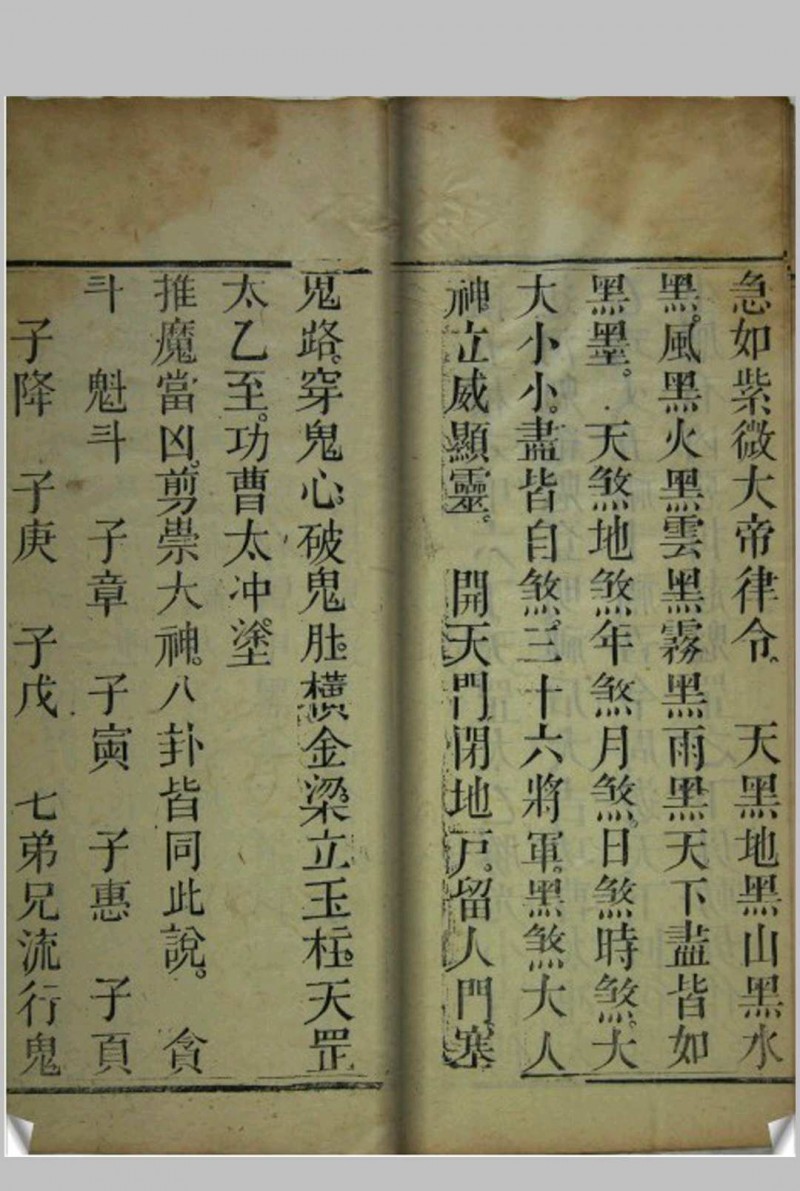 急如紫微大帝律令。　天黑地黑山黑水
黑。風黑火黑雲黑霧黑雨黑天下盡皆如
黑墨。　天煞地煞年煞月煞。日煞時煞。大
大小小。盡皆自煞。三十六將軍。黑煞大人
神立威顯靈。　開天門閉地戸。留人門。塞
鬼路。穿鬼心。破鬼肚。橫金梁立玉柱。天罡
太乙至。功曹太冲塗
推魔當凶。剪祟大神。八卦皆同此說。　貪
斗　魁斗　子章　子寅　子惠　子頁
子降　子庚　子戊　七弟兄流行鬼